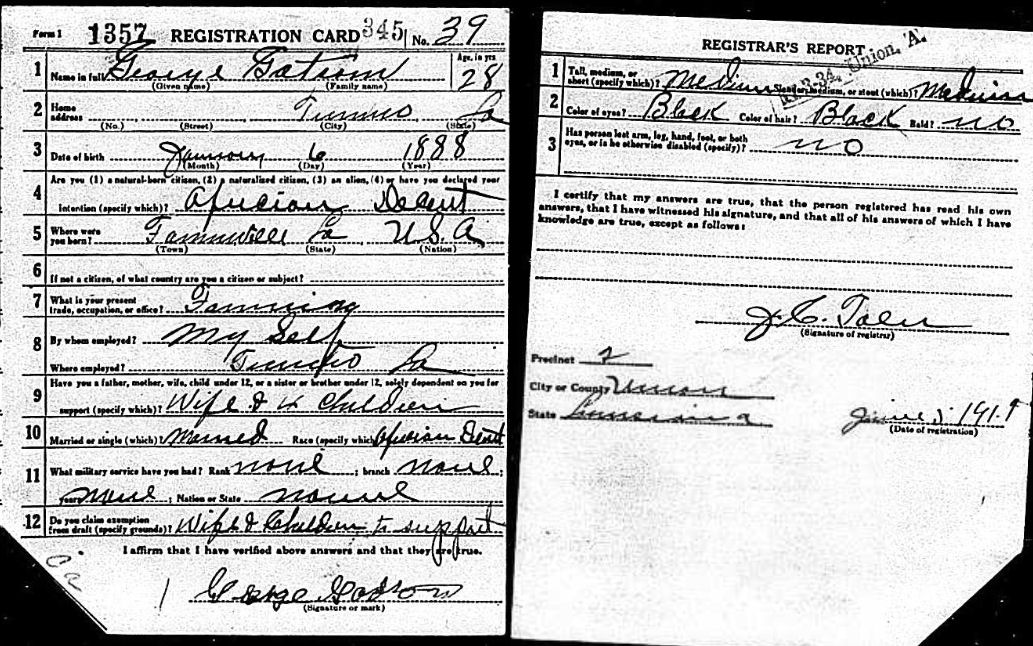 Form 1 1357 REGISTRATION CARD 345 No. 39
1 Name in full George Gatson Age, in yrs 28
(Given name) (Family name)
2 Home address La
(No.) (Street) (City) (State)
3 Date of birth January 6 1888
(Month) (Day) (Year)
4 Are you (1) a natural-born citizen, (2) a naturalized citizen, (3) an alien, (4) or have you declared your
intention (specify which)? African Decent
5 Where were you born? Farmerville La U.S.A
(Town) (State) (Nation)
6 If not a citizen, of what country are you a citizen or subject?
7 What is your present trade, occupation, or office? Farming
8 By whom employed? My Self
Where employed? La
9 Have you a father, mother, wife, child under 12, or a sister or brother under 12, solely dependent on you for
support (specify which)? Wife & Children
10 Married or single (which)? Married Race (specify which)? African Decent
11 What military service have you had? Rank none ; branch none ;
years none ; Nation or State none
12 Do you claim exemption from draft (specify grounds)? Wife & Children to support
I affirm that I have verified above answers and that they are true.
George Gatson
(Signature or mark)
REGISTRAR'S REPORT
Union, A.
1 Tall, medium, or short (specify which)? Medium Slender, medium, or stout (which)? Medium
2 Color of eyes? Black Color of hair? Black Bald? no
3 Has person lost arm, leg, hand, foot, or both eyes, or is he otherwise disabled (specify)? no
I certify that my answers are true, that the person registered has read his own
answers, that I have witnessed his signature, and that all of his answers of which I have
knowledge are true, except as follows:
(Signature of registrar)
Precinct 2
City or County Union
State Louisiana June 5 191
(Date of registration)